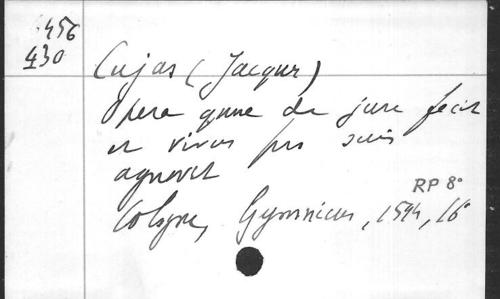 456
430
Cujas (Jacques)
Opera quae de jure fecit
et vivus pro suis
agnovit
Cologne, Gymnicus, 1594, 16°
RP 8°